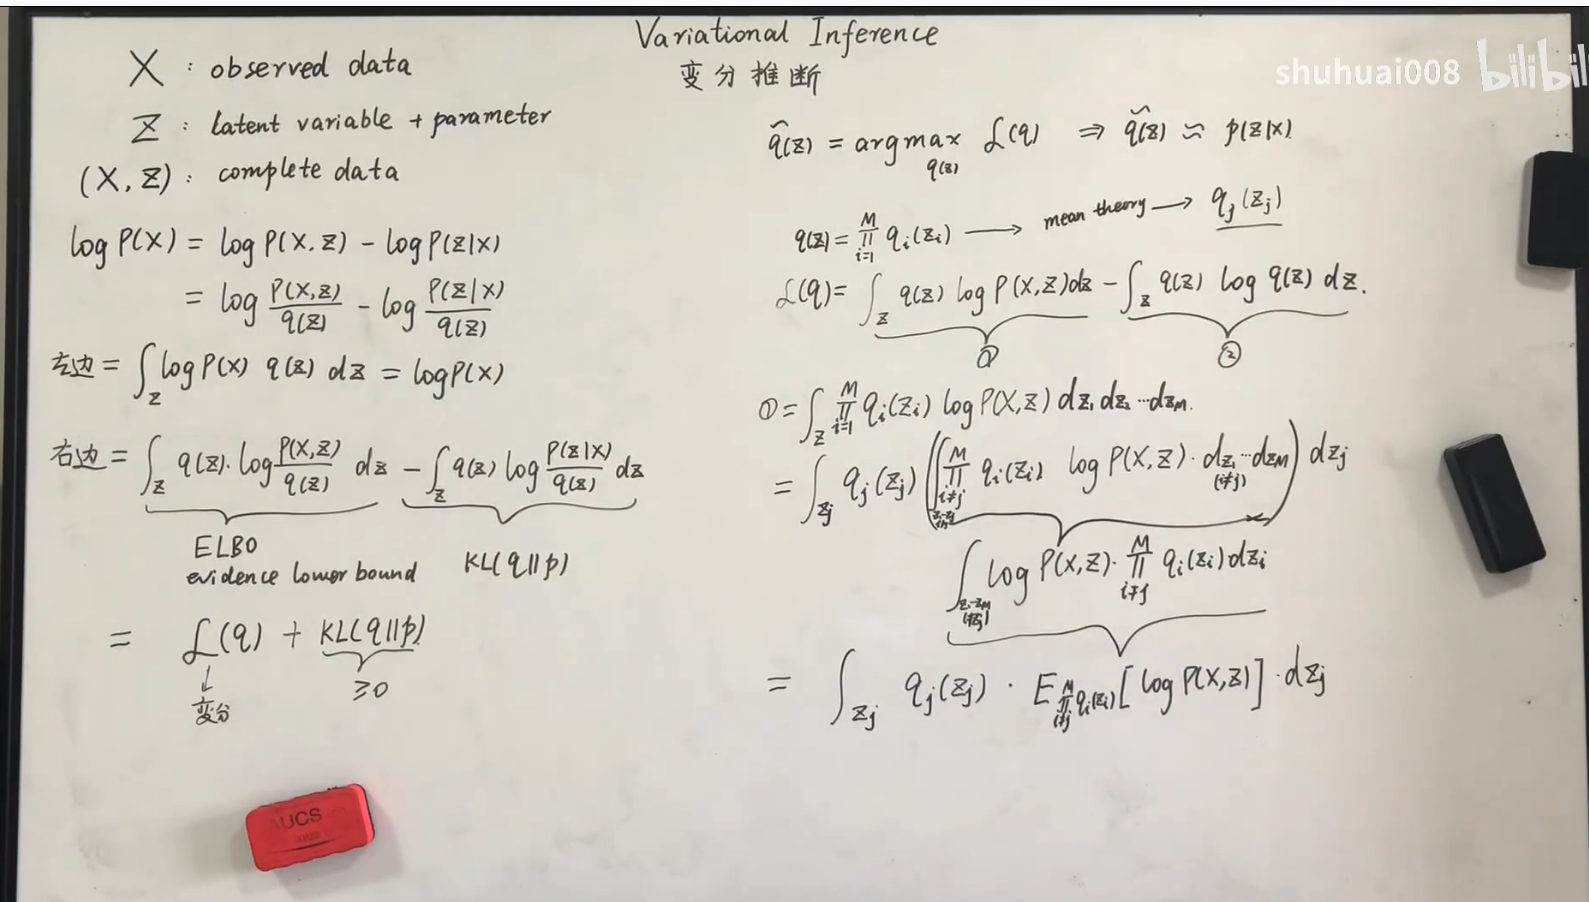 Variational Inference
变分推断
shuhuai008 bilibili
X : observed data
Z : latent variable + parameter
(X, Z) : complete data
log P(X) = log P(X, Z) - log P(Z|X)
= log P(X,Z)/q(Z) - log P(Z|X)/q(Z)
左边 = ∫_Z log P(X) q(Z) dZ = log P(X)
右边 = ∫_Z q(Z) · log P(X,Z)/q(Z) dZ - ∫_Z q(Z) log P(Z|X)/q(Z) dZ
ELBO
evidence lower bound
KL(q||p)
= ℒ(q) + KL(q||p)
≥0
↓
变分
q̂(Z) = argmax_{q(Z)} ℒ(q) ⇒ q̂(Z) ≈ p(Z|X)
q(Z) = ∏_{i=1}^{M} q_i(Z_i) ⟶ mean theory ⟶ q_j(Z_j)
ℒ(q) = ∫_Z q(Z) log P(X,Z) dZ - ∫_Z q(Z) log q(Z) dZ.
① ②
① = ∫_Z ∏_{i=1}^{M} q_i(Z_i) log P(X,Z) dZ_1 dZ_2 ⋯ dZ_M.
= ∫_{Z_j} q_j(Z_j) (∫ ∏_{i≠j}^{M} q_i(Z_i) log P(X,Z) · dZ_1 ⋯ dZ_M (i≠j)) dZ_j
∫_{Z_1-Z_M (≠Z_j)} log P(X,Z) · ∏_{i≠j}^{M} q_i(Z_i) dZ_i
= ∫_{Z_j} q_j(Z_j) · E_{∏_{i≠j}^{M} q_i(Z_i)} [log P(X,Z)] · dZ_j
AUCS